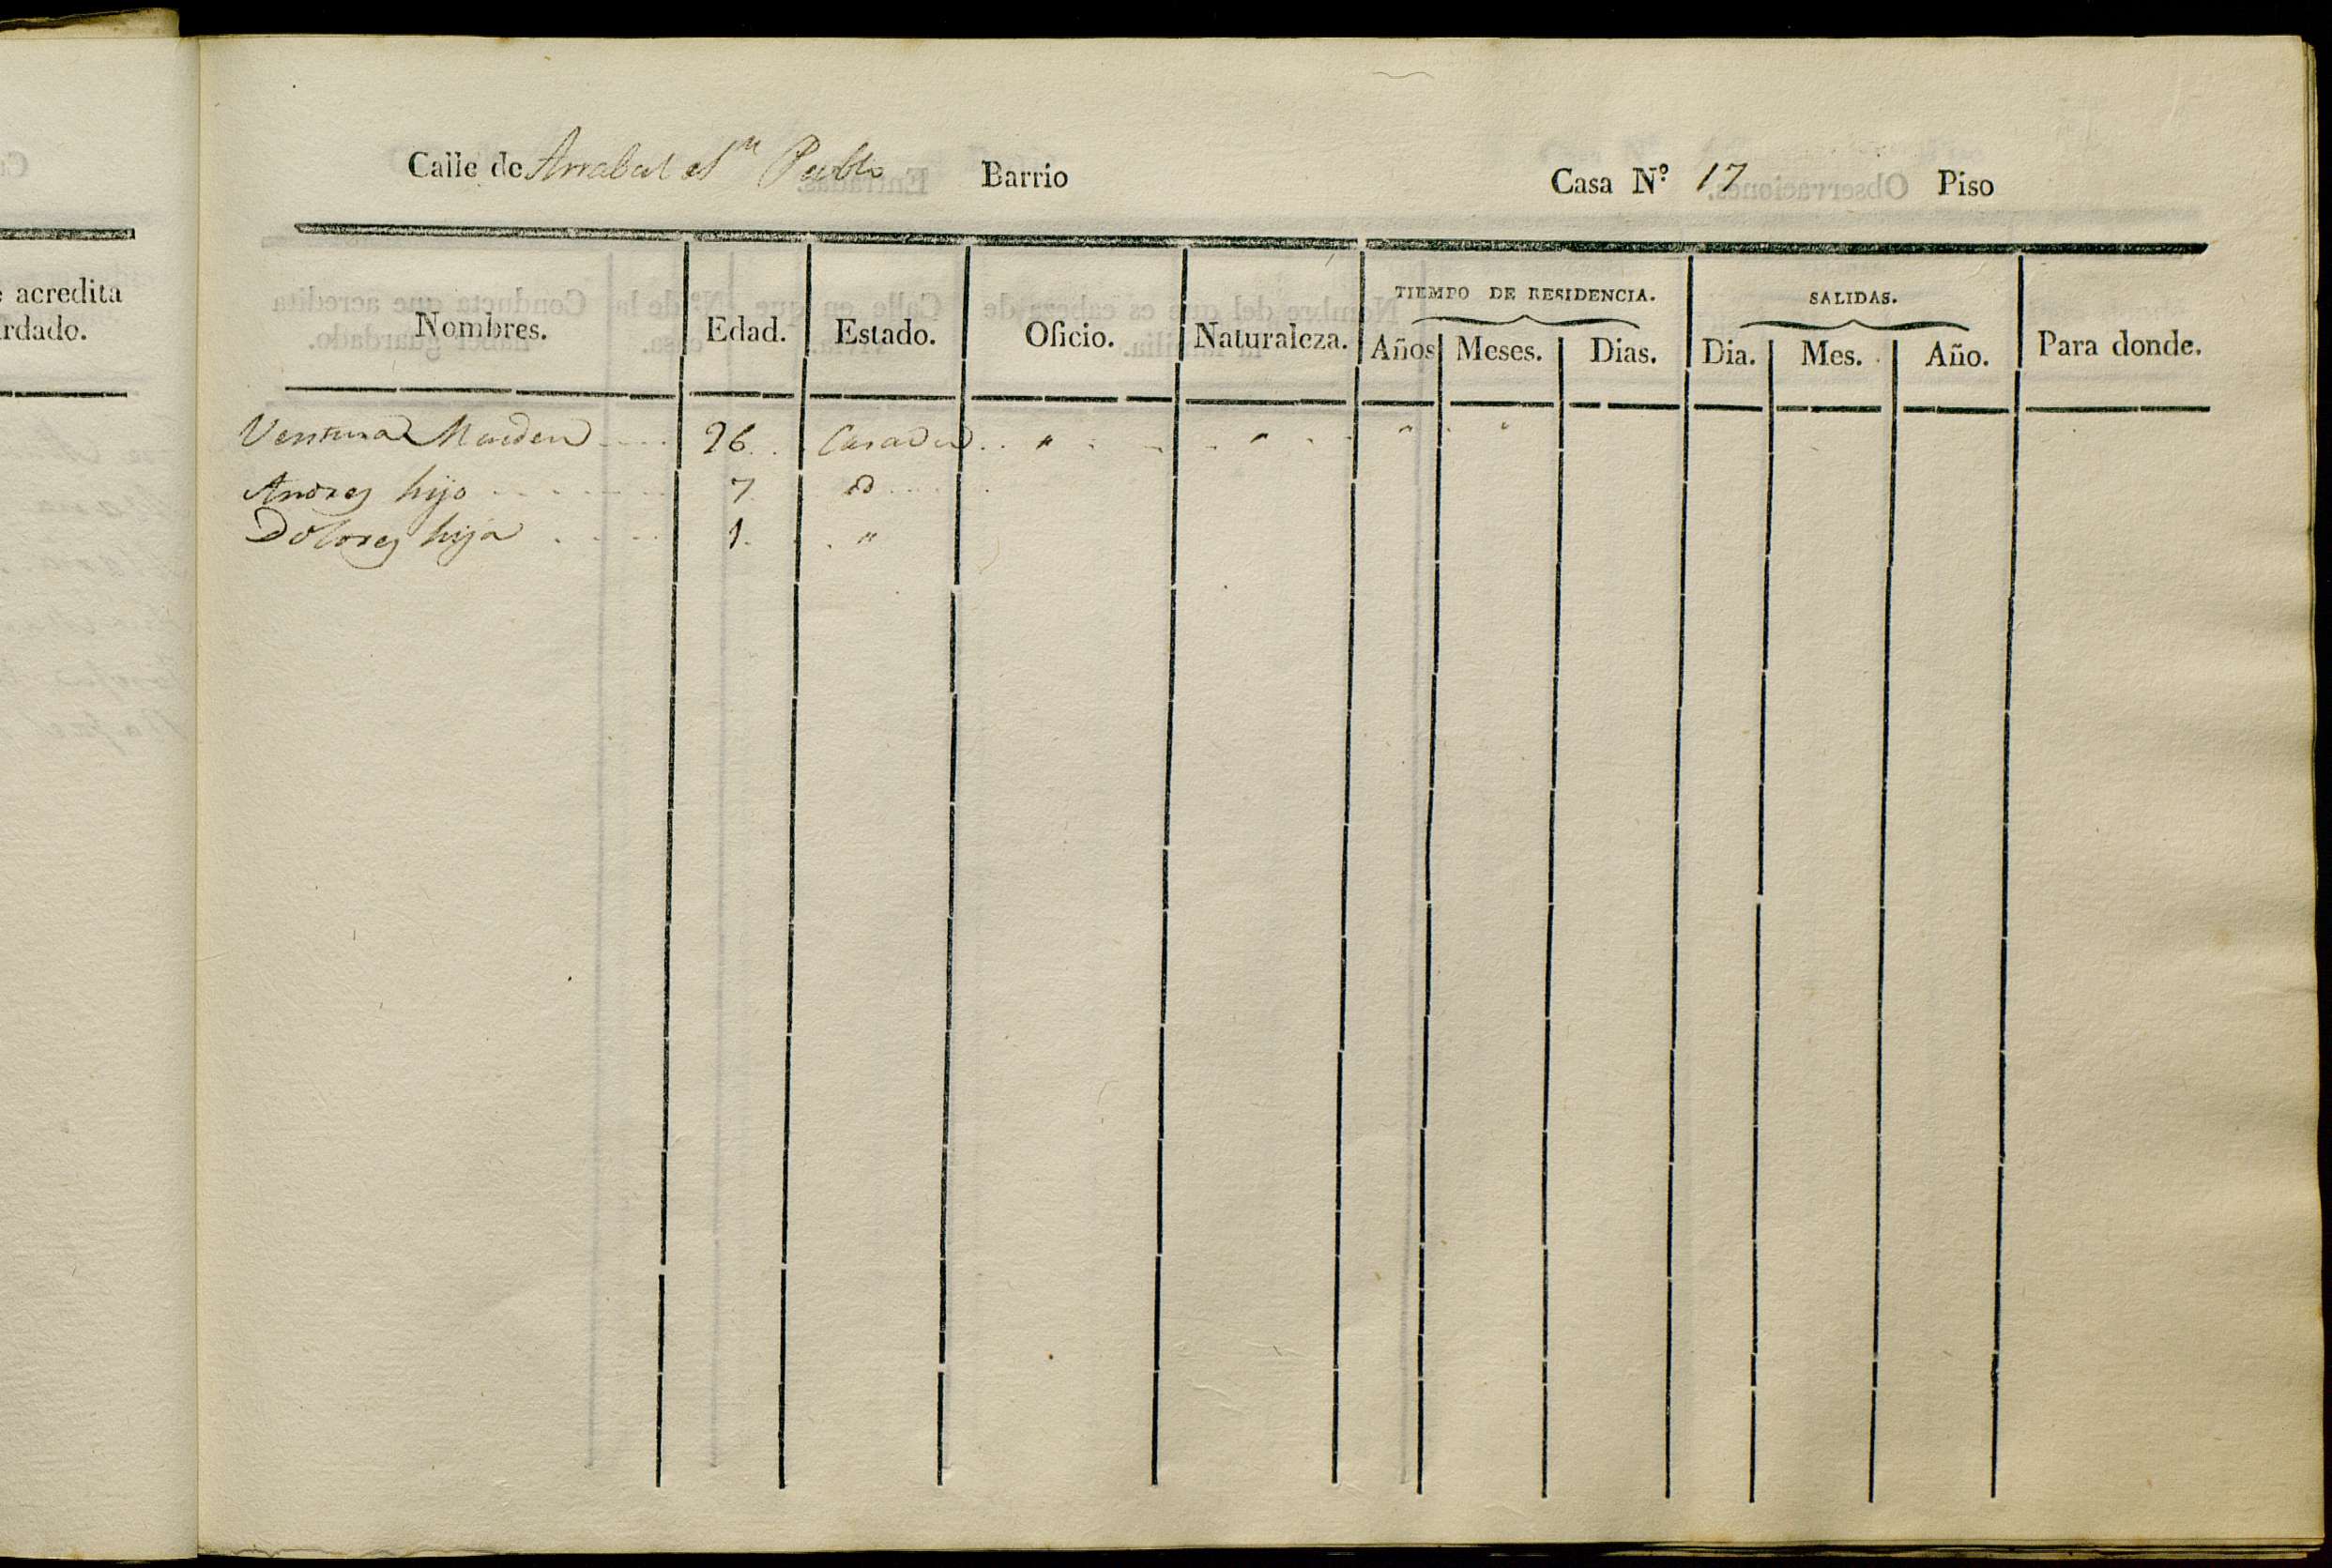 Calle de Arrabal Sn Pablo Barrio Casa Nº 17 Piso
acredita
rdado.
TIEMPO DE RESIDENCIA. SALIDAS.
Nombres. Edad. Estado. Oficio. Naturaleza. Años Meses. Dias. Dia. Mes. Año. Para donde.
Ventura 26 Casada " " " "
Andres hijo 7
Dolores hija 1 "